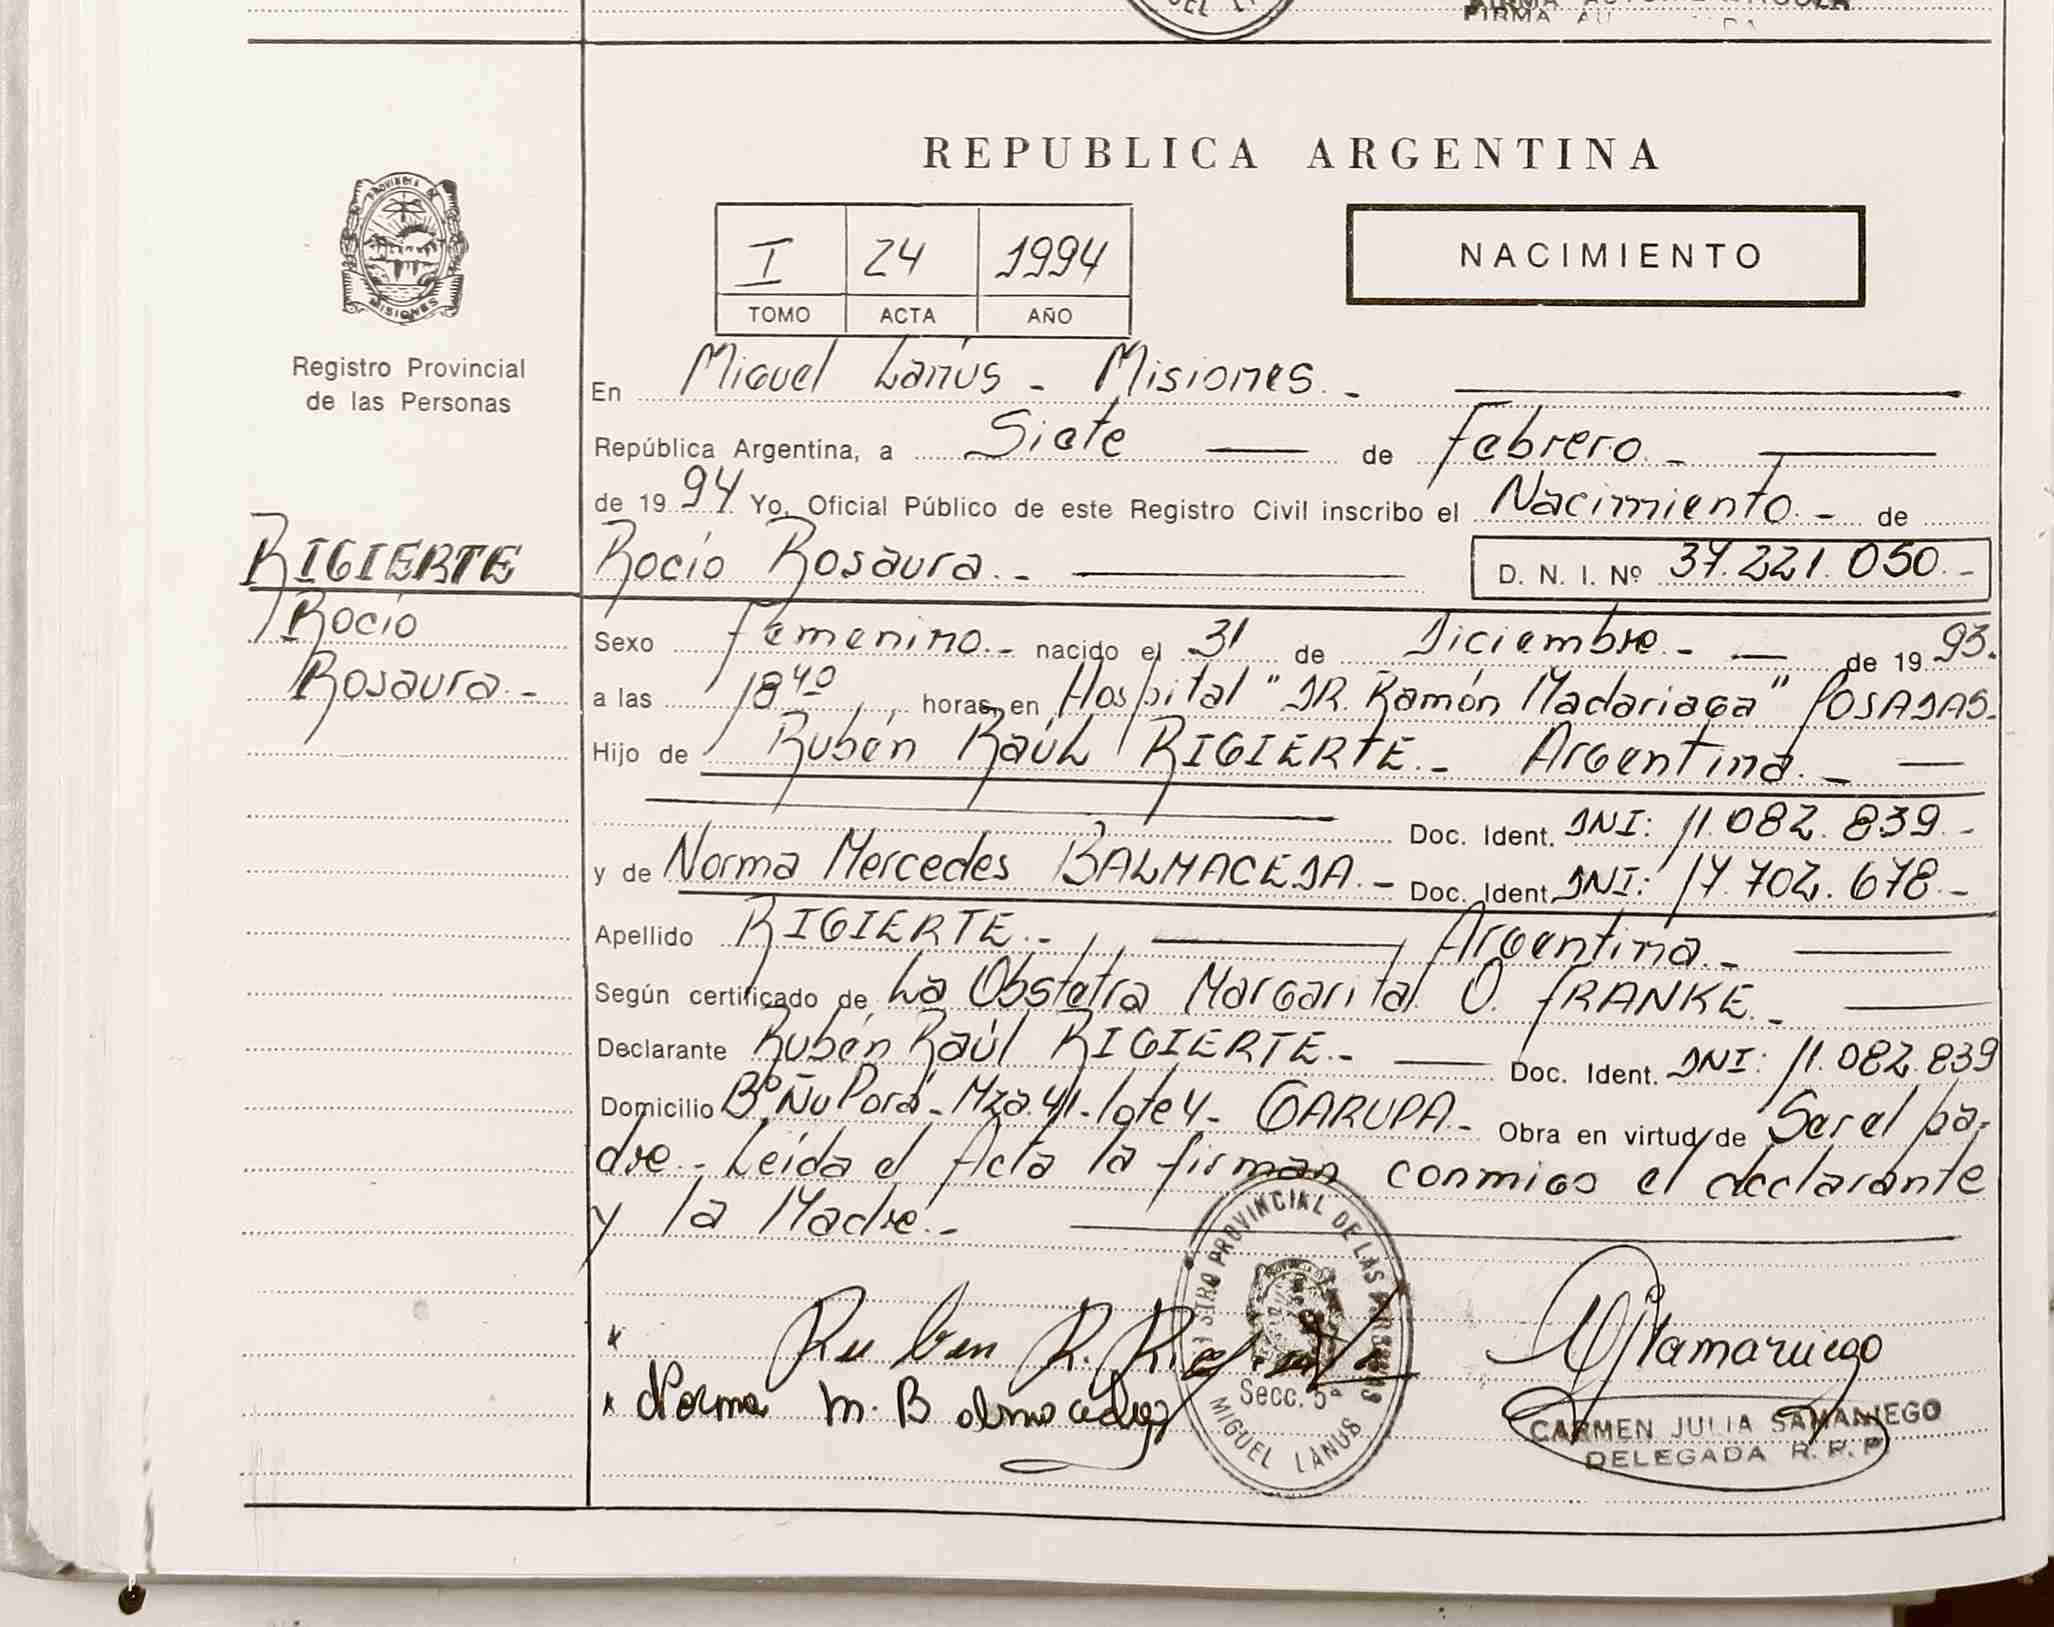 FIRMA AU
REPUBLICA ARGENTINA
PROVINCIA DE
MISIONES
I 24 1994
TOMO ACTA AÑO
NACIMIENTO
Registro Provincial
de las Personas
En Miguel Lanús - Misiones. -
República Argentina, a Siete de Febrero. -
de 1994 Yo, Oficial Público de este Registro Civil inscribo el Nacimiento. - de
RIGIERTE
Rocío
Rosaura. -
Rocío Rosaura. - D. N. I. Nº 37.221.050. -
Sexo Femenino. - nacido el 31 de Diciembre. - de 1993.
a las 18 40 horas, en Hospital "DR. Ramón Madariaga" POSADAS.
Hijo de Rubén Raúl RIGIERTE. - Argentina. -
Doc. Ident. DNI: 11.082.839. -
y de Norma Mercedes BALMACEDA. - Doc. Ident. DNI: 17.702.678. -
Apellido RIGIERTE. - Argentina. -
Según certificado de La Obstetra Margarita O. FRANKE. -
Declarante Rubén Raúl RIGIERTE. - Doc. Ident. DNI: 11.082.839
Domicilio Bº Ñu Porá - Mza. 41 - lote 4 - GARUPA. - Obra en virtud de Ser el pa-
dre. - Leída el Acta la firman conmigo el declarante
y la Madre. -
REGISTRO PROVINCIAL DE LAS PERSONAS
Secc. 5ª
MIGUEL LANUS
x Ruben R. Rigierte
x Norma M. Balmaceda
CARMEN JULIA SAMANIEGO
DELEGADA R. P. P.